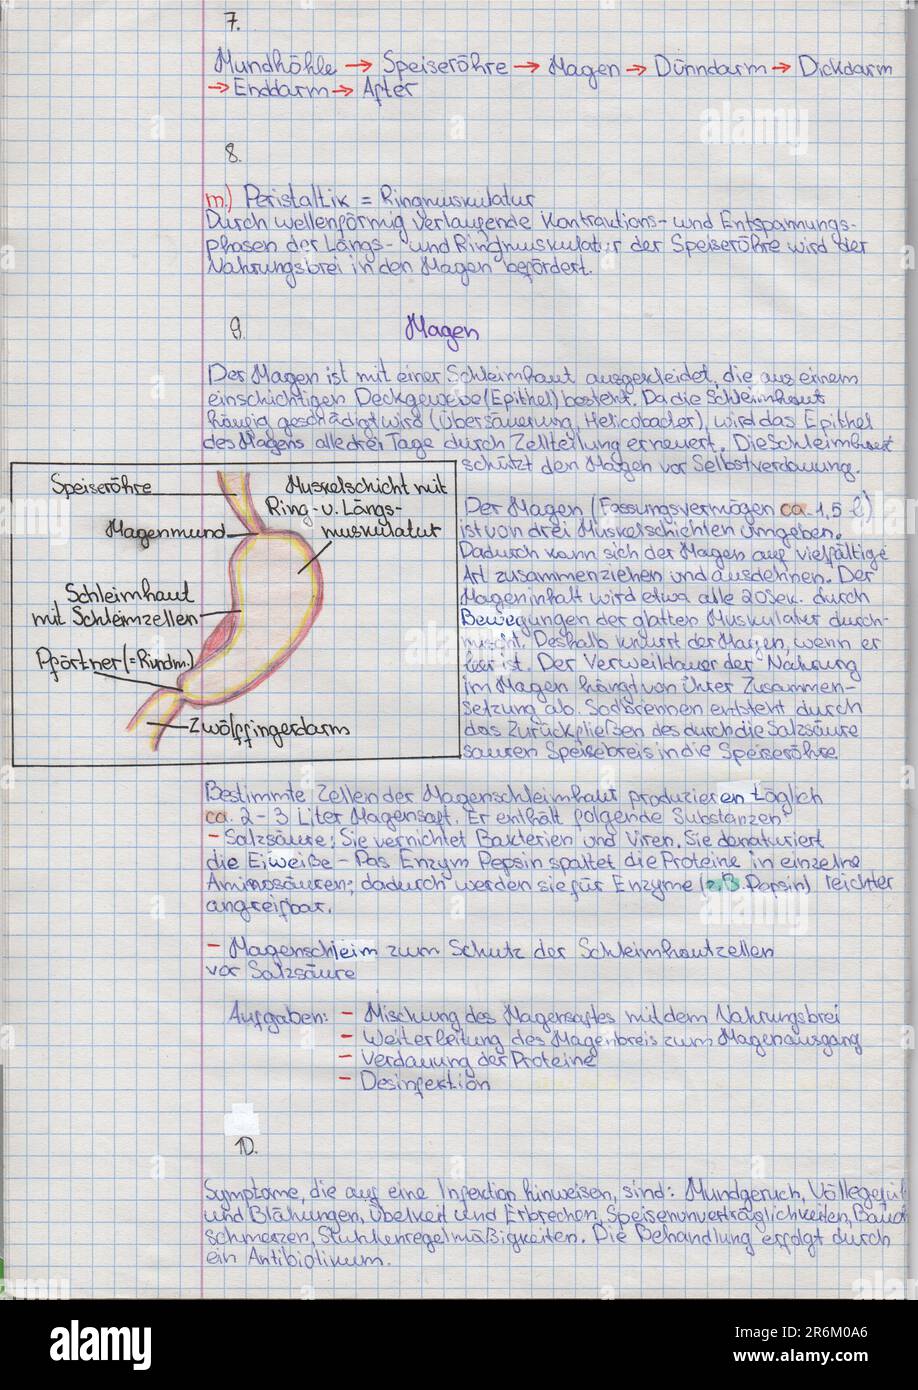 7.
Mundhöhle → Speiseröhre → Magen → Dünndarm → Dickdarm
→ Enddarm → After
8.
m.) Peristaltik = Ringmuskulatur
Durch wellenförmig verlaufende Kontraktions- und Entspannungs-
phasen der Längs- und Ringmuskulatur der Speiseröhre wird der
Nahrungsbrei in den Magen befördert.
9. Magen
Der Magen ist mit einer Schleimhaut ausgekleidet, die aus einem
einschichtigen Deckgewebe (Epithel) besteht. Da die Schleimhaut
häufig geschädigt wird (Übersäuerung, Helicobacter), wird das Epithel
des Magens alle drei Tage durch Zellteilung erneuert. Die Schleimhaut
schützt den Magen vor Selbstverdauung.
Speiseröhre
Muskelschicht mit
Ring- u. Längs-
muskulatur
Magenmund
Schleimhaut
mit Schleimzellen
Pförtner (= Rindm.)
Zwölffingerdarm
Der Magen (Fassungsvermögen ca. 1,5 l)
ist von drei Muskelschichten umgeben.
Dadurch kann sich der Magen auf vielfältige
Art zusammenziehen und ausdehnen. Der
Mageninhalt wird etwa alle 20 Sek. durch
Bewegungen der glatten Muskulatur durch-
mischt. Deshalb knurrt der Magen, wenn er
leer ist. Der Verweildauer der Nahrung
im Magen hängt von ihrer Zusammen-
setzung ab. Sodbrennen entsteht durch
das Zurückfließen des durch die Salzsäure
sauren Speisebreis in die Speiseröhre.
Bestimmte Zellen der Magenschleimhaut produzieren täglich
ca. 2-3 Liter Magensaft. Er enthält folgende Substanzen:
- Salzsäure: Sie vernichtet Bakterien und Viren. Sie denaturiert
die Eiweiße - Das Enzym Pepsin spaltet die Proteine in einzelne
Aminosäuren; dadurch werden sie für Enzyme (z.B. Pepsin) leichter
angreifbar.
- Magenschleim zum Schutz der Schleimhautzellen
vor Salzsäure
Aufgaben: - Mischung des Magensaftes mit dem Nahrungsbrei
- Weiterleitung des Magenbreis zum Magenausgang
- Verdauung der Proteine
- Desinfektion
10.
Symptome, die auf eine Infektion hinweisen, sind: Mundgeruch, Völlegefühl
und Blähungen, Übelkeit und Erbrechen, Speisenunverträglichkeiten, Bauch-
schmerzen, Stuhlunregelmäßigkeiten. Die Behandlung erfolgt durch
ein Antibiotikum.
alamy
Image ID: 2R6M0A6
www.alamy.com